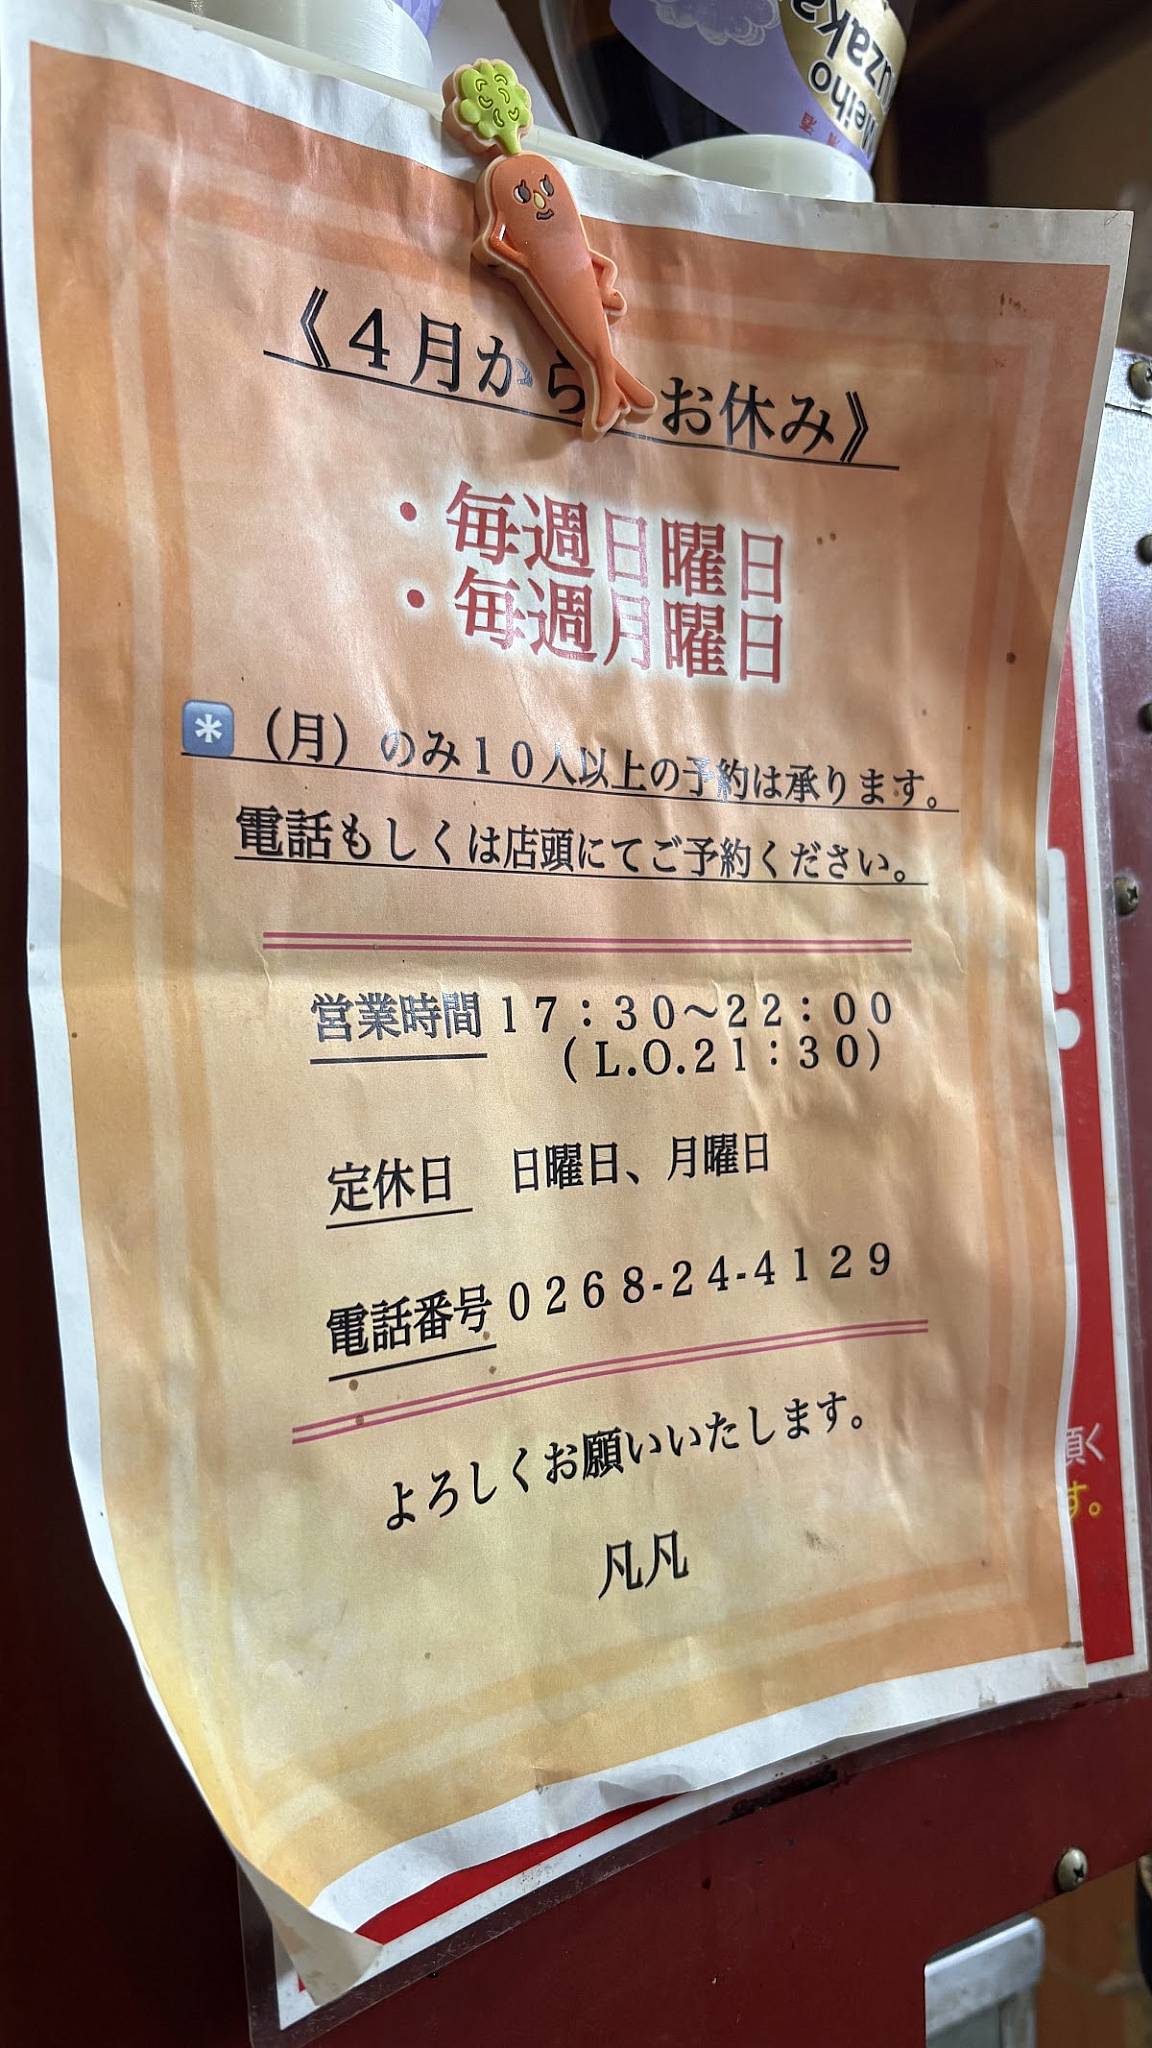 Meiho
uzaka
《４月から お休み》
・毎週日曜日
・毎週月曜日
*（月）のみ１０人以上の予約は承ります。
電話もしくは店頭にてご予約ください。
営業時間 １７：３０～２２：００
（L.O.２１：３０）
定休日 日曜日、月曜日
電話番号 ０２６８-２４-４１２９
よろしくお願いいたします。
凡凡
頂く
す。